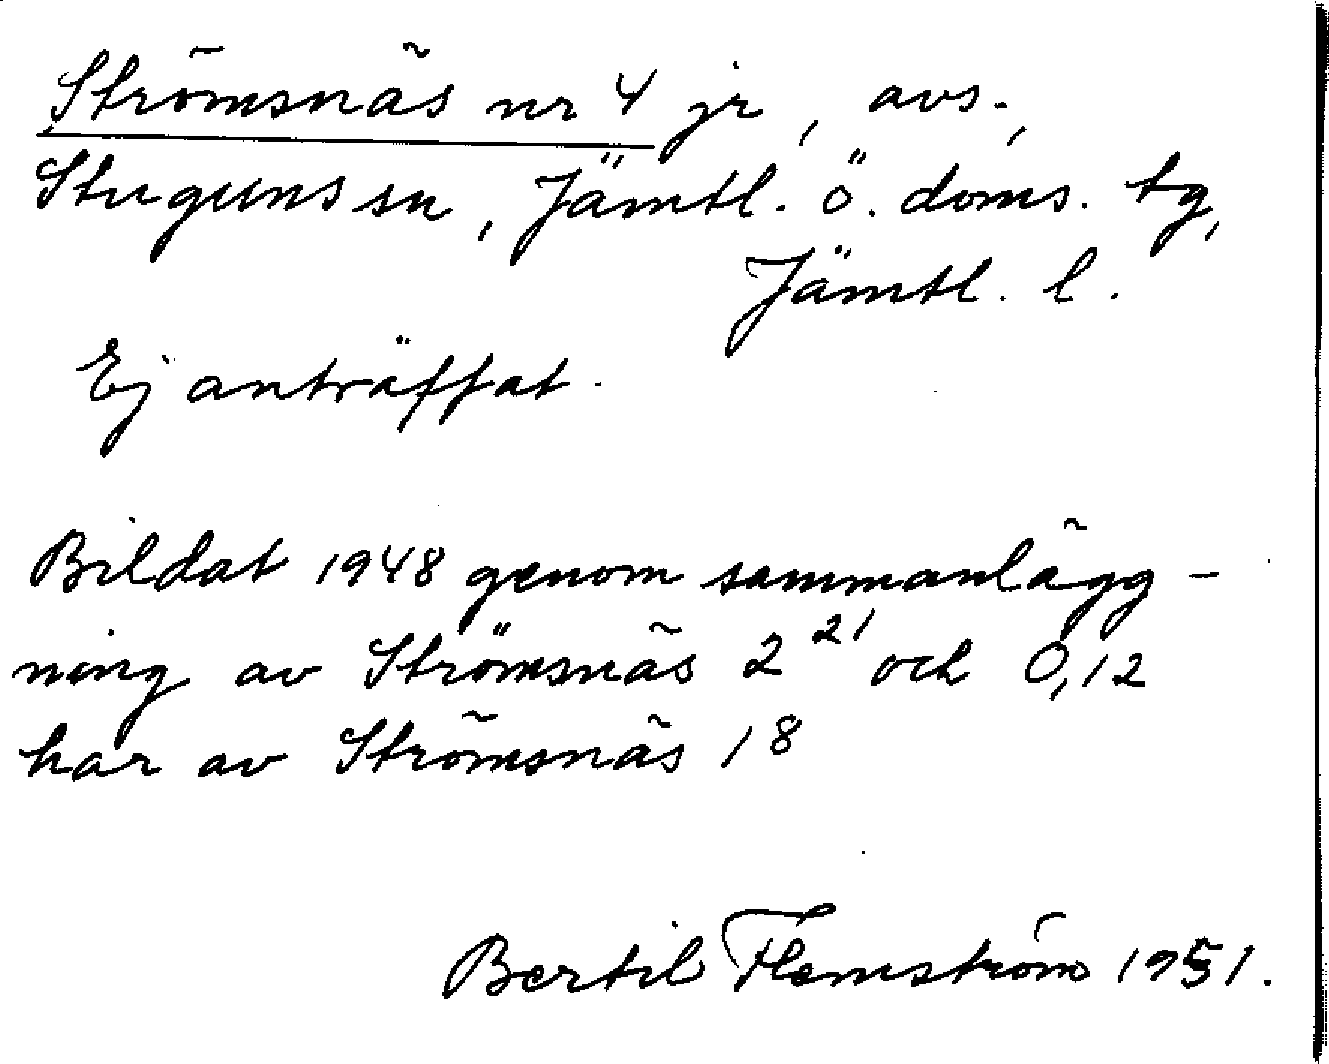 Strömsnäs nr 4 jr, avs.,
Stuguns sn, Jämtl. ö. doms. tg,
Jämtl. l.
Ej anträffat.
Bildat 1948 genom sammanlägg-
ning av Strömsnäs 2²¹ och 0,12
har av Strömsnäs 1⁸
Bertil Flemström 1951.